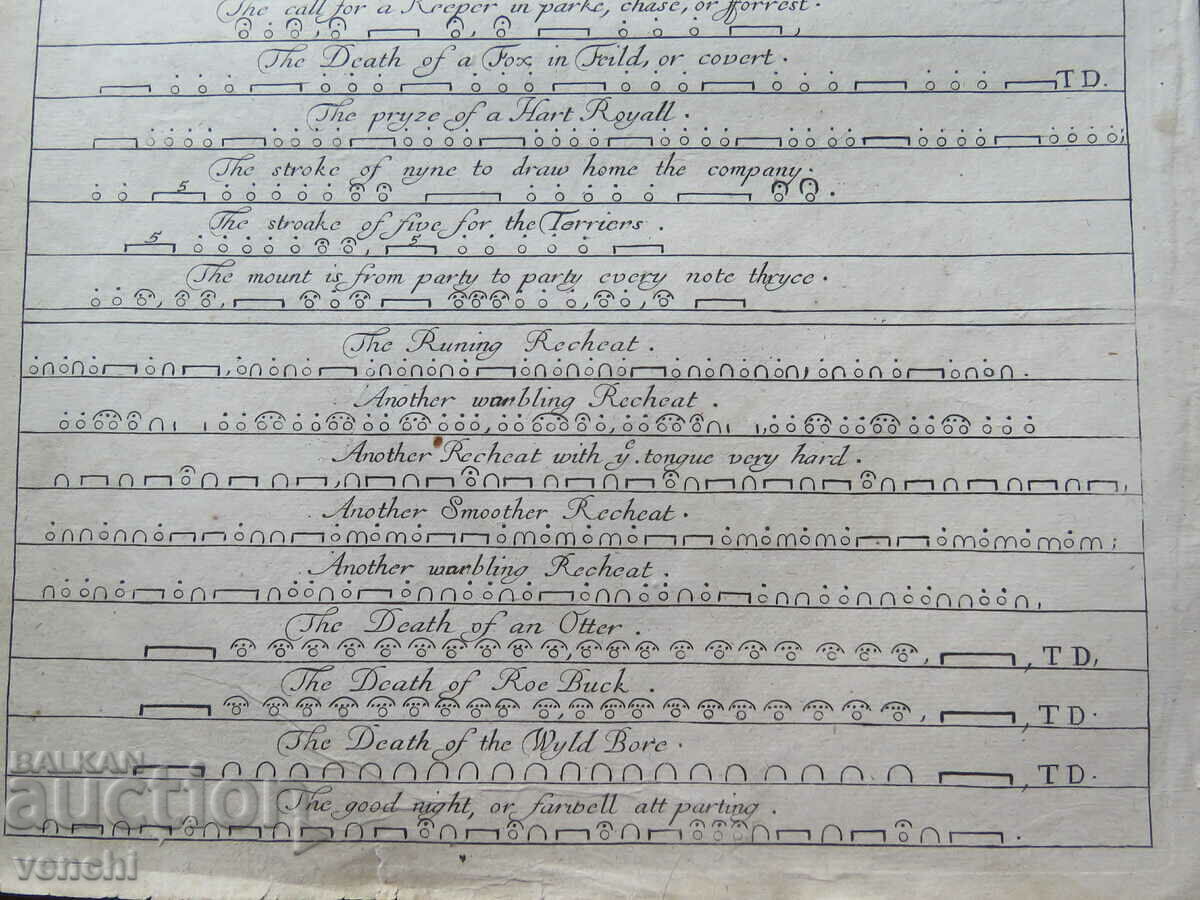 The call for a Keeper in parke, chase, or fforrest.
The Death of a Fox in Feild, or covert.
T D.
The pryze of a Hart Royall.
The stroke of nyne to draw home the company.
5
The stroake of five for the Terriers.
5 5
The mount is from party to party every note thryce.
The Runing Recheat.
Another warbling Recheat.
Another Recheat with ye. tongue very hard.
Another Smoother Recheat.
Another warbling Recheat.
The Death of an Otter.
, T D,
The Death of Roe Buck.
, T D.
The Death of the Wyld Bore.
, T D.
The good night, or farwell att parting.
BALKAN
auction
venchi